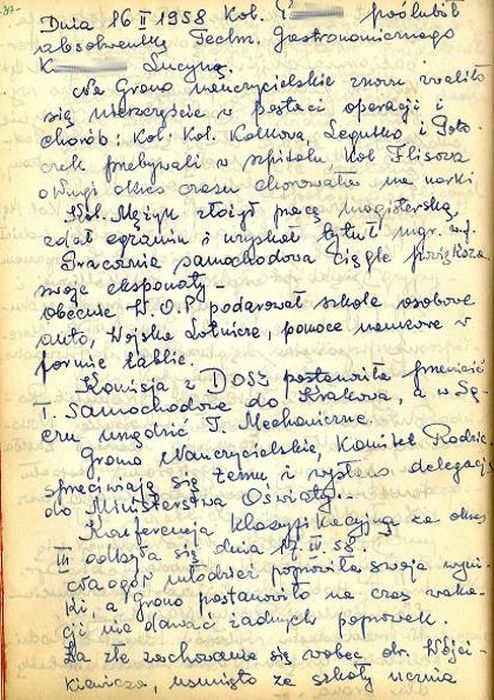 Dnia 16 II 1958 Kol. poślubił
absolwentkę Techn. Gastronomicznego
K Lucynę.
Na Grono nauczycielskie znowu zwaliło
się nieszczęście w postaci operacji i
chorób: Kol. Kol. Kolkowa, Legutko i Poto
czek przebywali w szpitalu, Kol Flisowa
długi okres czasu chorowała na nerki
Kol. Mężyk złożył pracę magisterską,
zdał egzamin i uzyskał tytuł mgr. w.f.
Pracownia samochodowa ciągle zwiększa
swoje eksponaty -
obecnie W.O.P podarował szkole osobowe
auto, Wojska Lotnicze, pomoce naukowe w
formie tablic.
Komisja z DOSZ postanowiła przenieść
T. Samochodowe do Krakowa, a w Są-
czu urządzić T. Mechaniczne.
Grono Nauczycielskie, Komitet Rodzic
sprzeciwiają się temu i wysłano delegację
do Ministerstwa Oświaty...
Konferencja klasyfikacyjna za okres
III odbyła się dnia 17. IV. 58.
Na ogół młodzież poprawiła swoje wyni-
ki, a Grono postanowiło na czas waka-
cji nie dawać żadnych poprawek.
Za złe zachowanie się wobec ob. Wójci-
kiewicza, usunięto ze szkoły ucznia